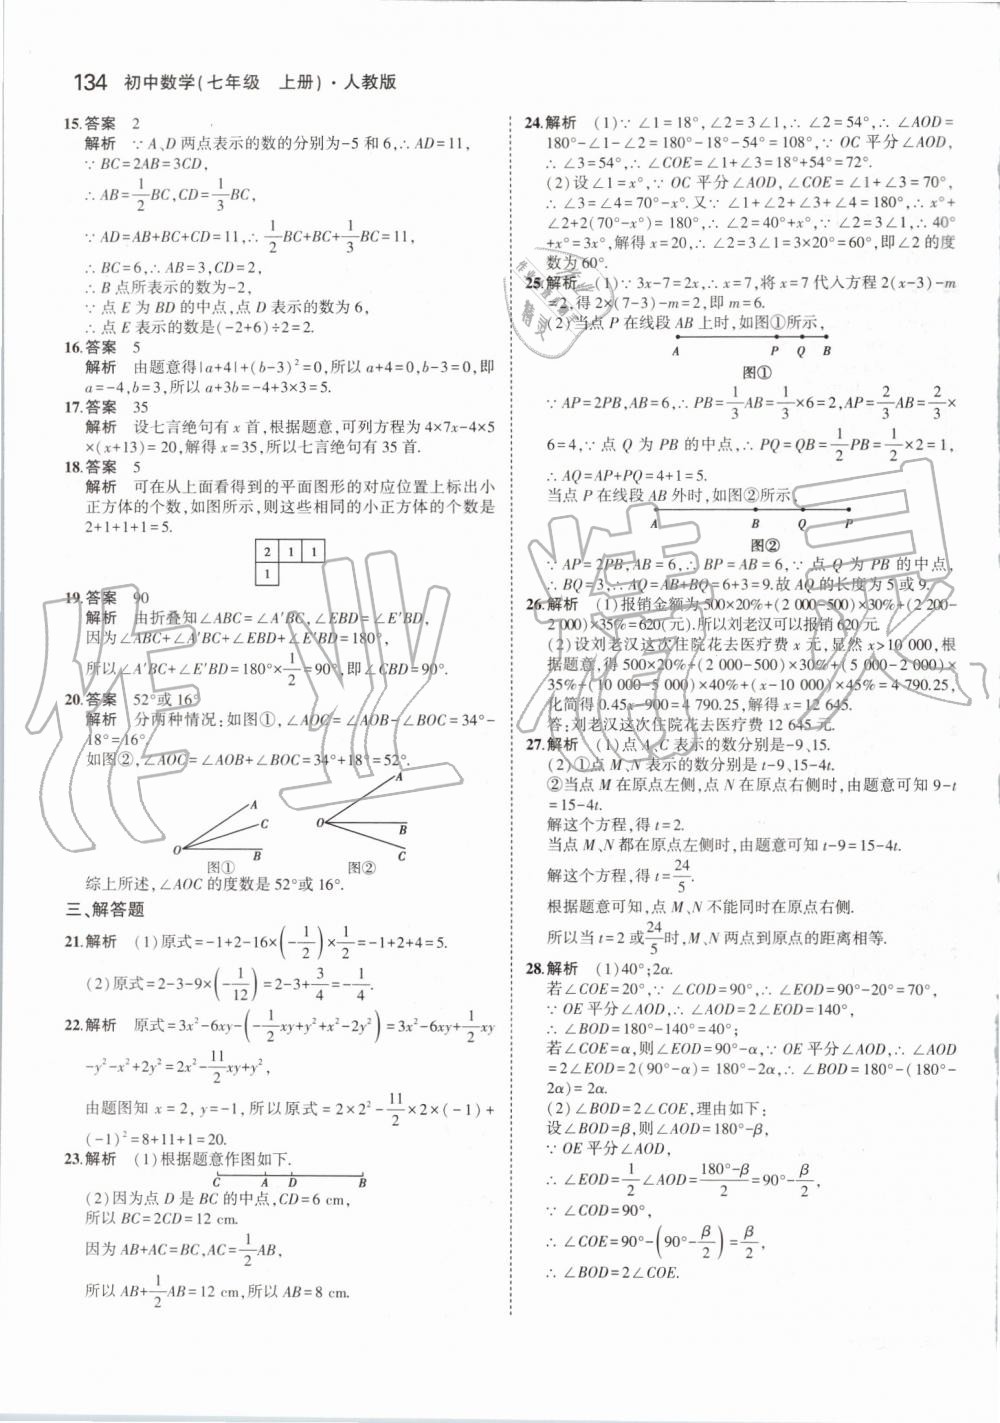 134 初中数学(七年级 上册)·人教版
15.答案 2
解析 ∵A、D两点表示的数的分别为-5和6,∴AD=11,
∵BC=2AB=3CD,
∴AB=1/2BC,CD=1/3BC,
∵AD=AB+BC+CD=11,∴1/2BC+BC+1/3BC=11,
∴BC=6,∴AB=3,CD=2,
∴B点所表示的数为-2,
∵点E为BD的中点,点D表示的数为6,
∴点E表示的数是(-2+6)÷2=2.
16.答案 5
解析 由题意得|a+4|+(b-3)²=0,所以a+4=0,b-3=0,即
a=-4,b=3,所以a+3b=-4+3×3=5.
17.答案 35
解析 设七言绝句有x首,根据题意,可列方程为4×7x-4×5
×(x+13)=20,解得x=35,所以七言绝句有35首.
18.答案 5
解析 可在从上面看得到的平面图形的对应位置上标出小
正方体的个数,如图所示,则这些相同的小正方体的个数是
2+1+1+1=5.
2 1 1
1
19.答案 90
解析 由折叠知∠ABC=∠A'BC,∠EBD=∠E'BD,
因为∠ABC+∠A'BC+∠EBD+∠E'BD=180°,
所以∠A'BC+∠E'BD=180°×1/2=90°,即∠CBD=90°.
20.答案 52°或16°
解析 分两种情况:如图①,∠AOC=∠AOB-∠BOC=34°-
18°=16°.
如图②,∠AOC=∠AOB+∠BOC=34°+18°=52°.
A C O B A O B C
图① 图②
综上所述,∠AOC的度数是52°或16°.
三、解答题
21.解析 (1)原式=-1+2-16×(-1/2)×1/2=-1+2+4=5.
(2)原式=2-3-9×(-1/12)=2-3+3/4=-1/4.
22.解析 原式=3x²-6xy-(-1/2xy+y²+x²-2y²)=3x²-6xy+1/2xy
-y²-x²+2y²=2x²-11/2xy+y²,
由题图知x=2,y=-1,所以原式=2×2²-11/2×2×(-1)+
(-1)²=8+11+1=20.
23.解析 (1)根据题意作图如下.
C A D B
(2)因为点D是BC的中点,CD=6 cm,
所以BC=2CD=12 cm.
因为AB+AC=BC,AC=1/2AB,
所以AB+1/2AB=12 cm,所以AB=8 cm.
24.解析 (1)∵∠1=18°,∠2=3∠1,∴∠2=54°,∴∠AOD=
180°-∠1-∠2=180°-18°-54°=108°,∵OC平分∠AOD,
∴∠3=54°,∴∠COE=∠1+∠3=18°+54°=72°.
(2)设∠1=x°,∵OC平分∠AOD,∠COE=∠1+∠3=70°,
∴∠3=∠4=70°-x°.又∵∠1+∠2+∠3+∠4=180°,∴x°+
∠2+2(70°-x°)=180°,∴∠2=40°+x°,∵∠2=3∠1,∴40°
+x°=3x°,解得x=20,∴∠2=3∠1=3×20°=60°,即∠2的度
数为60°.
25.解析 (1)∵3x-7=2x,∴x=7,将x=7代入方程2(x-3)-m
=2,得2×(7-3)-m=2,即m=6.
(2)当点P在线段AB上时,如图①所示,
A P Q B
图①
∵AP=2PB,AB=6,∴PB=1/3AB=1/3×6=2,AP=2/3AB=2/3×
6=4,∵点Q为PB的中点,∴PQ=QB=1/2PB=1/2×2=1,
∴AQ=AP+PQ=4+1=5.
当点P在线段AB外时,如图②所示,
A B Q P
图②
∵AP=2PB,AB=6,∴BP=AB=6,∵点Q为PB的中点,
∴BQ=3,∴AQ=AB+BQ=6+3=9.故AQ的长度为5或9.
26.解析 (1)报销金额为500×20%+(2 000-500)×30%+(2 200-
2 000)×35%=620(元).所以刘老汉可以报销620元.
(2)设刘老汉这次住院花去医疗费x元,显然x>10 000,根
据题意,得500×20%+(2 000-500)×30%+(5 000-2 000)×
35%+(10 000-5 000)×40%+(x-10 000)×45%=4 790.25,
化简得0.45x-900=4 790.25,解得x=12 645.
答:刘老汉这次住院花去医疗费12 645元.
27.解析 (1)点A、C表示的数分别是-9、15.
(2)①点M、N表示的数分别是t-9、15-4t.
②当点M在原点左侧,点N在原点右侧时,由题意可知9-t
=15-4t.
解这个方程,得t=2.
当点M、N都在原点左侧时,由题意可知t-9=15-4t.
解这个方程,得t=24/5.
根据题意可知,点M、N不能同时在原点右侧.
所以当t=2或24/5时,M、N两点到原点的距离相等.
28.解析 (1)40°;2α.
若∠COE=20°,∵∠COD=90°,∴∠EOD=90°-20°=70°,
∵OE平分∠AOD,∴∠AOD=2∠EOD=140°,
∴∠BOD=180°-140°=40°;
若∠COE=α,则∠EOD=90°-α,∵OE平分∠AOD,∴∠AOD
=2∠EOD=2(90°-α)=180°-2α,∴∠BOD=180°-(180°-
2α)=2α.
(2)∠BOD=2∠COE,理由如下:
设∠BOD=β,则∠AOD=180°-β,
∵OE平分∠AOD,
∴∠EOD=1/2∠AOD=(180°-β)/2=90°-β/2,
∵∠COD=90°,
∴∠COE=90°-(90°-β/2)=β/2,
∴∠BOD=2∠COE.
作业精灵